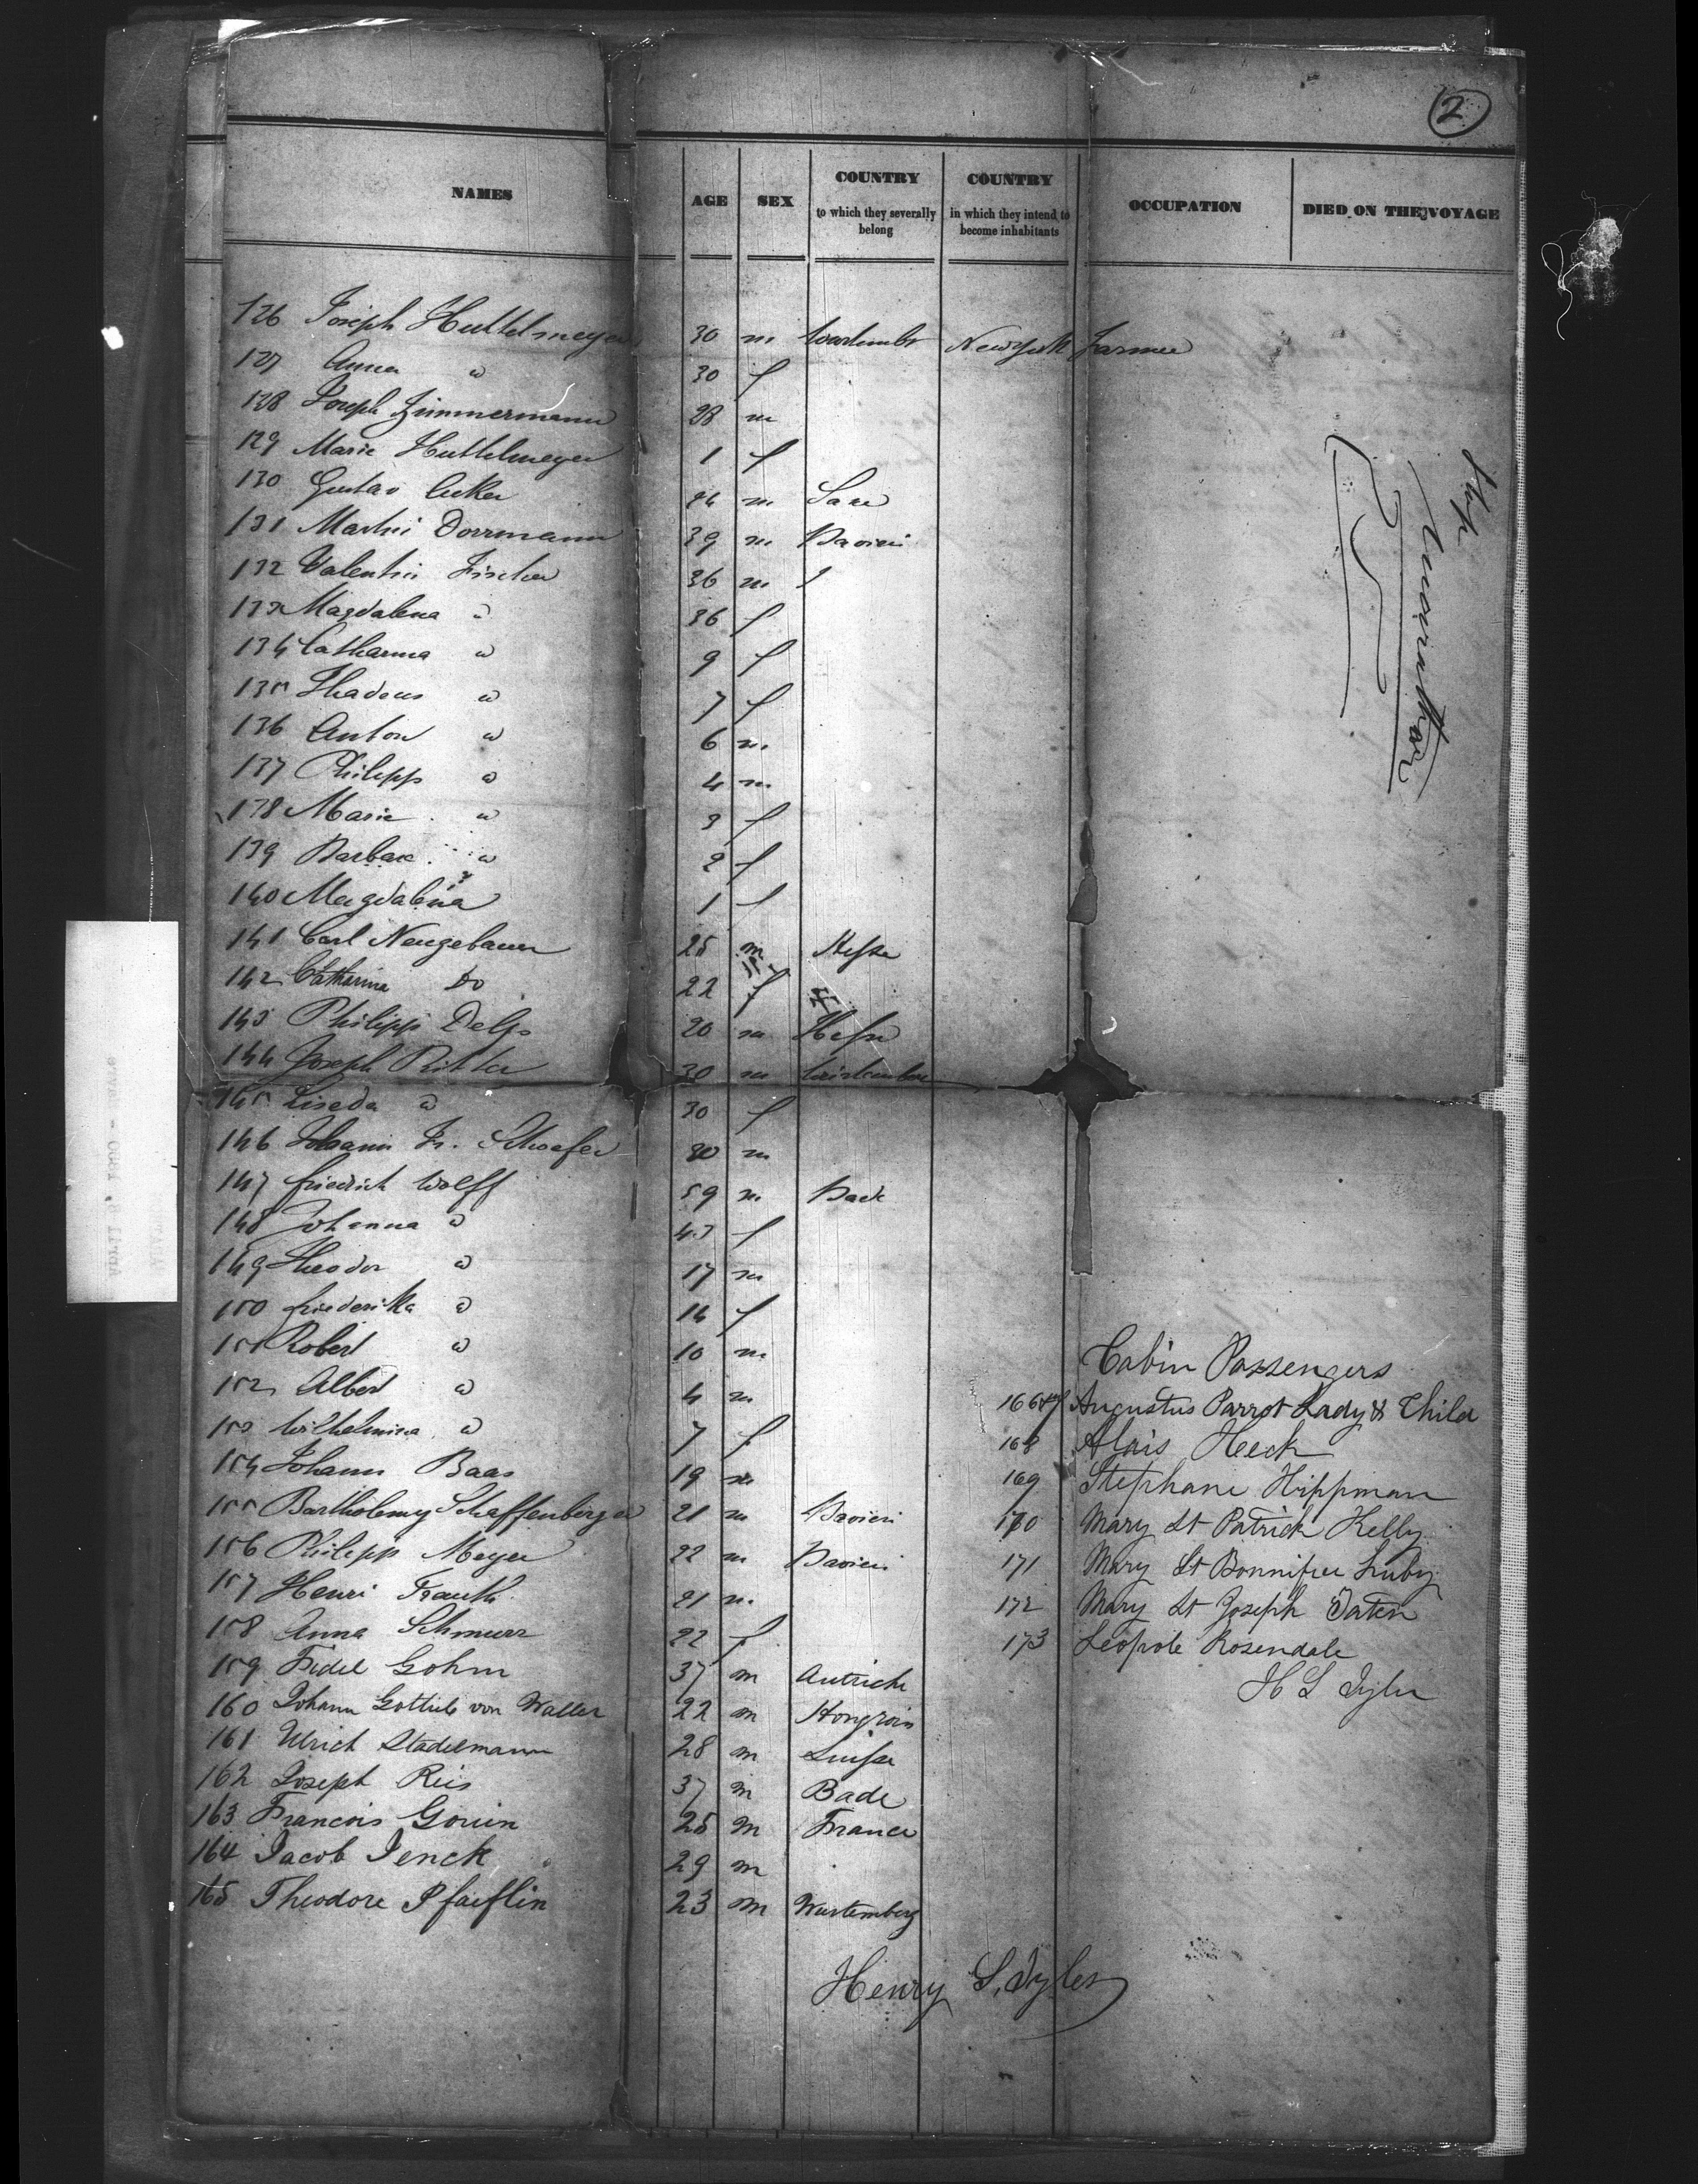 2
NAMES AGE SEX COUNTRY to which they severally belong COUNTRY in which they intend to become inhabitants OCCUPATION DIED ON THE VOYAGE
126 Joseph Huttelmeyer 30 m Newyork Farmer
127 Anna " 30 f
128 Joseph Zimmermann 28 m
129 Marie Huttelmeyer 1 f
130 Gustav 26 m
131 Martin Dorrmann 39 m Bavieri
132 Valentin Fischer 36 m
133 Magdalena " 36 f
134 Catharina " 9 f
135 Thadeus " 7 f
136 Anton " 6 m
137 Philipp " 4 m
138 Marie " 3 f
139 Barbara " 2 f
140 Magdalena 1 f
141 Carl Neugebauer 25 m Hesse
142 Catharina Do 22 f
143 Philipp Delp 20 m Hesse
144 Joseph Ritter 30 m
145 " 30 f
146 Johann Fr. Schaefer 30 m
147 Friedrich Wolff 59 m Bade
148 Johanna " 43 f
149 Theodor " 17 m
150 Friederika " 14 f
151 Robert " 10 m
152 Albert " 4 m
153 Wilhelmina " 7 f
154 Johann Baas 19 m
155 Bartholemy Schaffenberger 21 m Bavieri
156 Philipp Meyer 22 m Bavieri
157 Henri Frauth 21 m
158 Anna Schmurr 22 f
159 Fidel Gohm 37 m Autriche
160 Johann Gottlieb von Walter 22 m Hongrois
161 Ulrich Stadelmann 28 m Suisse
162 Joseph Reis 37 m Bade
163 Francois Gouin 25 m France
164 Jacob Jenck 29 m
165 Theodore Pfaeflin 23 m Wurtemberg
Henry S. Tyler
Ship
Cabin Passengers
166 & 7 Augustus Parrot Lady & Child
168 Alois Heck
169 Stephane Hippman
170 Mary St Patrick Kelly
171 Mary St Bonniface Luby
172 Mary St Joseph
173 Leopole Rosendale
H S Tyler